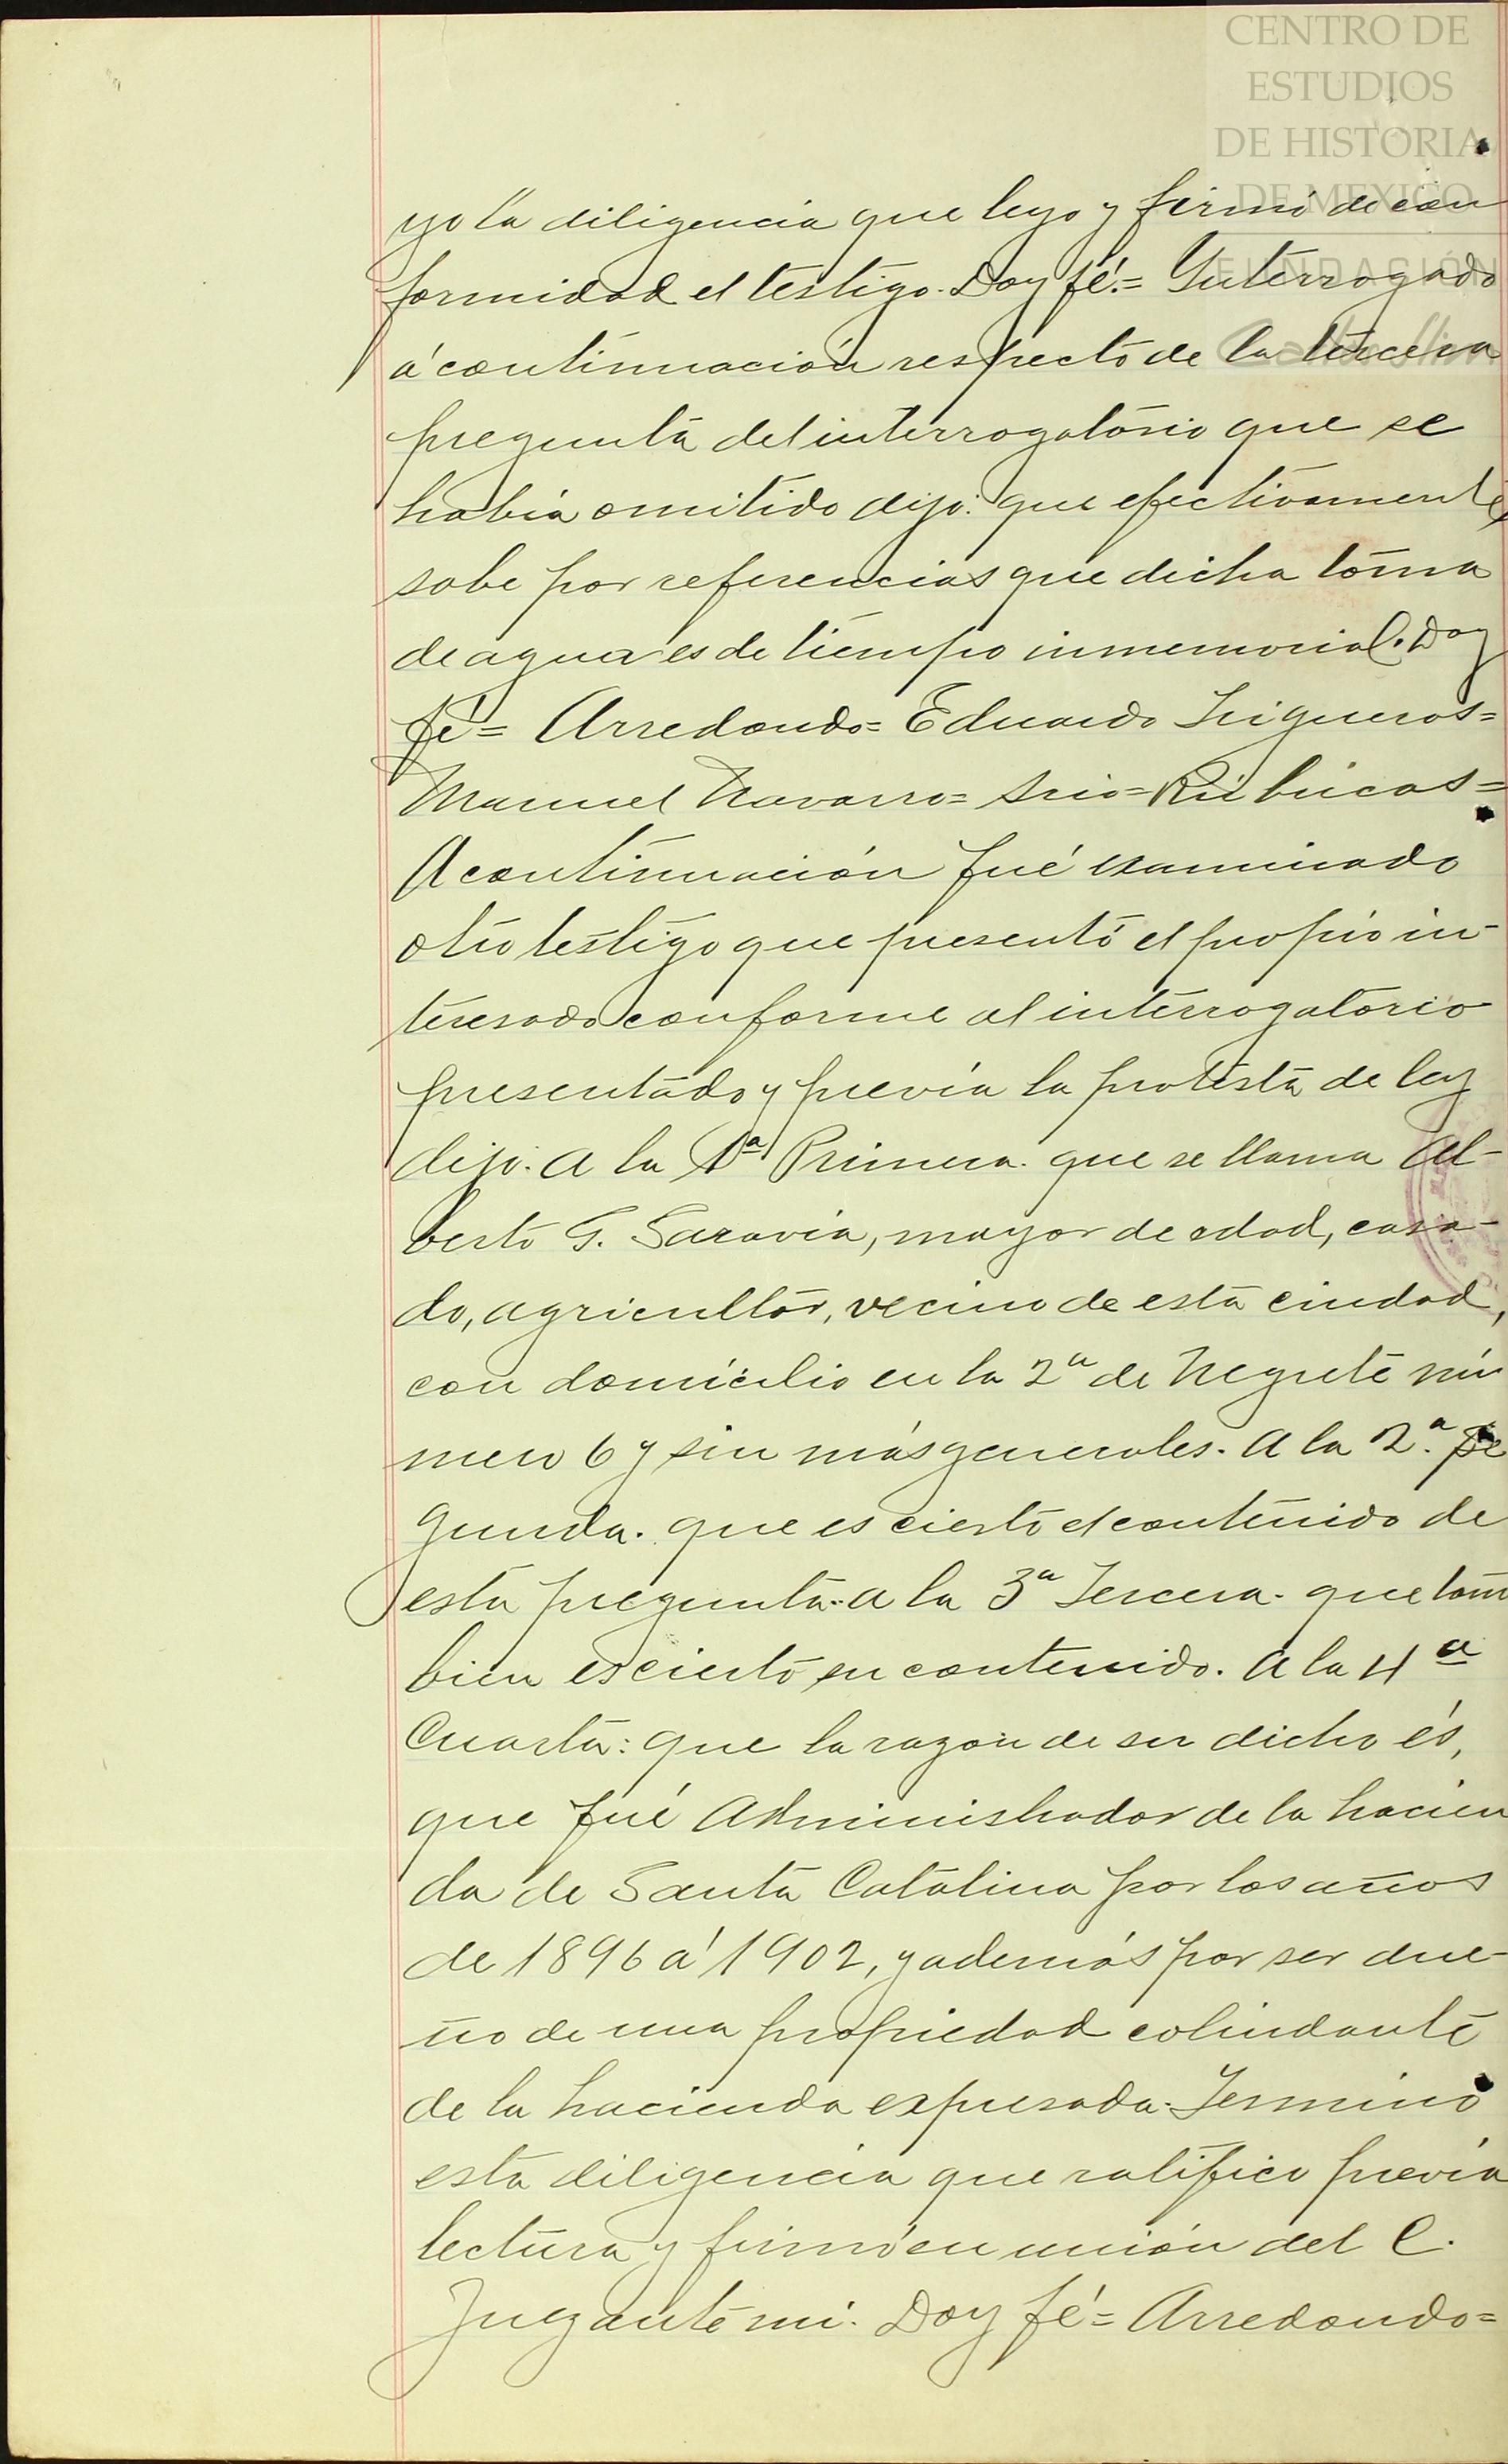 CENTRO DE
ESTUDIOS
DE HISTORIA
DE MEXICO
FUNDACIÓN
yo la diligencia que leyo y firmó de con
formidad el testigo. Doy fé.= Interrogado
á continuación respecto de la tercera
pregunta del interrogatorio que se
había omitido dijo: que efectivamente
sabe por referencias que dicha toma
de agua es de tiempo inmemorial. Doy
fé= Arredondo= Eduardo Trigueros=
Manuel Navarro= Srio= Rúbricas=
A continuación fué examinado
otro testigo que presentó el propio in-
teresado conforme al interrogatorio
presentado y previa la protesta de ley
dijo. A la 1ª Primera. que se llama Al-
berto G. Saravia, mayor de edad, casa-
do, agricultor, vecino de esta ciudad,
con domicilio en la 2ª de Negrete nú
mero 6 y sin más generales. A la 2.ª Se
gunda. que es cierto el contenido de
esta pregunta. A la 3ª Tercera. que tam
bien es cierto su contenido. A la 4ª
Cuarta: que la razón de su dicho és,
que fué Administrador de la hacien
da de Santa Catalina por los años
de 1896 á 1902, y además por ser due-
ño de una propiedad colindante
de la hacienda expresada. Terminó
esta diligencia que ratificó previa
lectura y firmó en unión del C.
Juez ante mi. Doy fé= Arredondo=